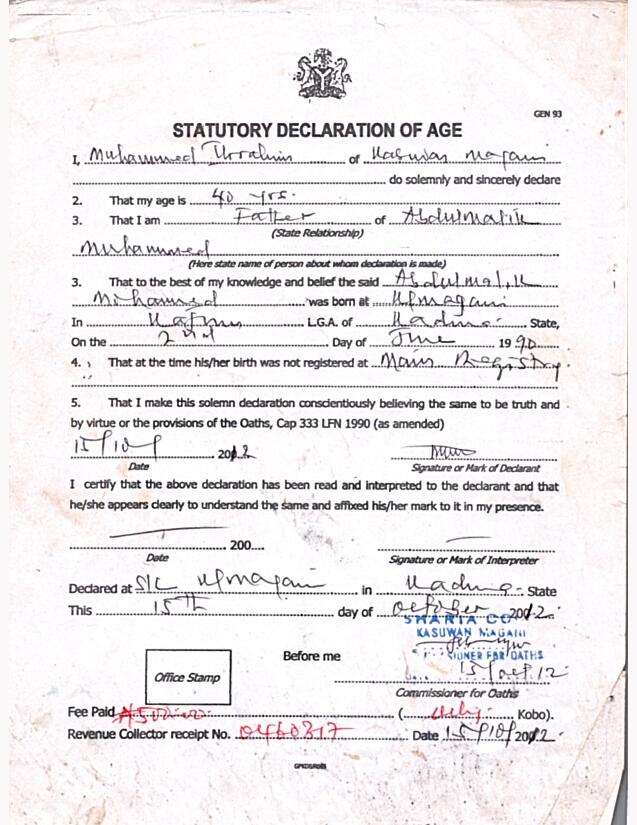 GEN 93
STATUTORY DECLARATION OF AGE
I, Muhammed Ibrahim of Kasuwan Magani
do solemnly and sincerely declare
2. That my age is 40 yrs.
3. That I am Father of Abdulmalik
(State Relationship)
Muhammed
(Here state name of person about whom declaration is made)
3. That to the best of my knowledge and belief the said Abdulmalik
Mohammed was born at K/magani
In L.G.A. of Kaduna State,
On the 2nd Day of June 1990
4. That at the time his/her birth was not registered at Main Registry
5. That I make this solemn declaration conscientiously believing the same to be truth and
by virtue or the provisions of the Oaths, Cap 333 LFN 1990 (as amended)
15/10/ 2012
Date Signature or Mark of Declarant
I certify that the above declaration has been read and interpreted to the declarant and that
he/she appears clearly to understand the same and affixed his/her mark to it in my presence.
200....
Date Signature or Mark of Interpreter
Declared at S/C K/magani in Kaduna State
This 15TH day of October 2012
SHARIA CO
KASUWAN MAGANI
Before me SIONER FOR OATHS
Office Stamp 15/oct/12
Commissioner for Oaths
Fee Paid ₦500:00 ( only Kobo).
Revenue Collector receipt No. 0460317 Date 15/10/2012.